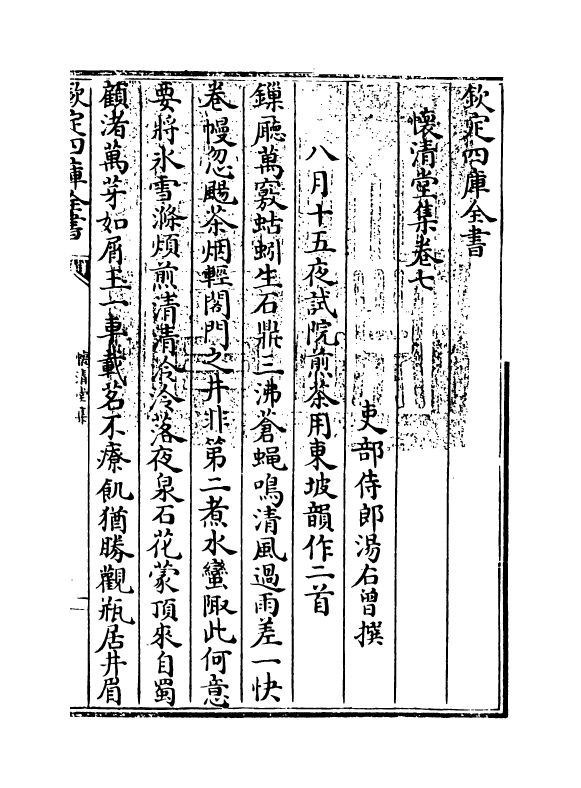 欽定四庫全書
懷清堂集卷七
吏部侍郎湯右曾撰
八月十五夜試院煎茶用東坡韻作二首
鏁廳萬竅蛄蚓生石鼎三沸蒼蝇鳴清風過雨差一快
卷幔忽颺茶烟輕閣門之井非第二煮水蠻陬此何意
要將氷雪滌煩煎清清泠泠落夜泉石花蒙頂來自蜀
顧渚萬芽如屑玉一車載茗不療飢猶勝觀瓶居井眉
欽定四庫全書
懷清堂集
一